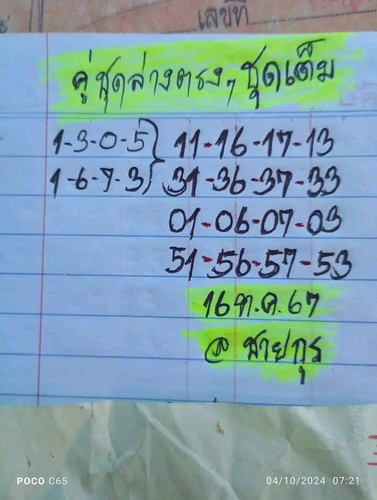 เลขที่
คู่ชุดล่างตรงๆ ชุดเต็ม
1-3-0-5} 11-16-17-13
1-6-7-3} 31-36-37-33
01-06-07-03
51-56-57-53
16 ต.ค. 67
@ ชายกุร
POCO C65
04/10/2024 07:21